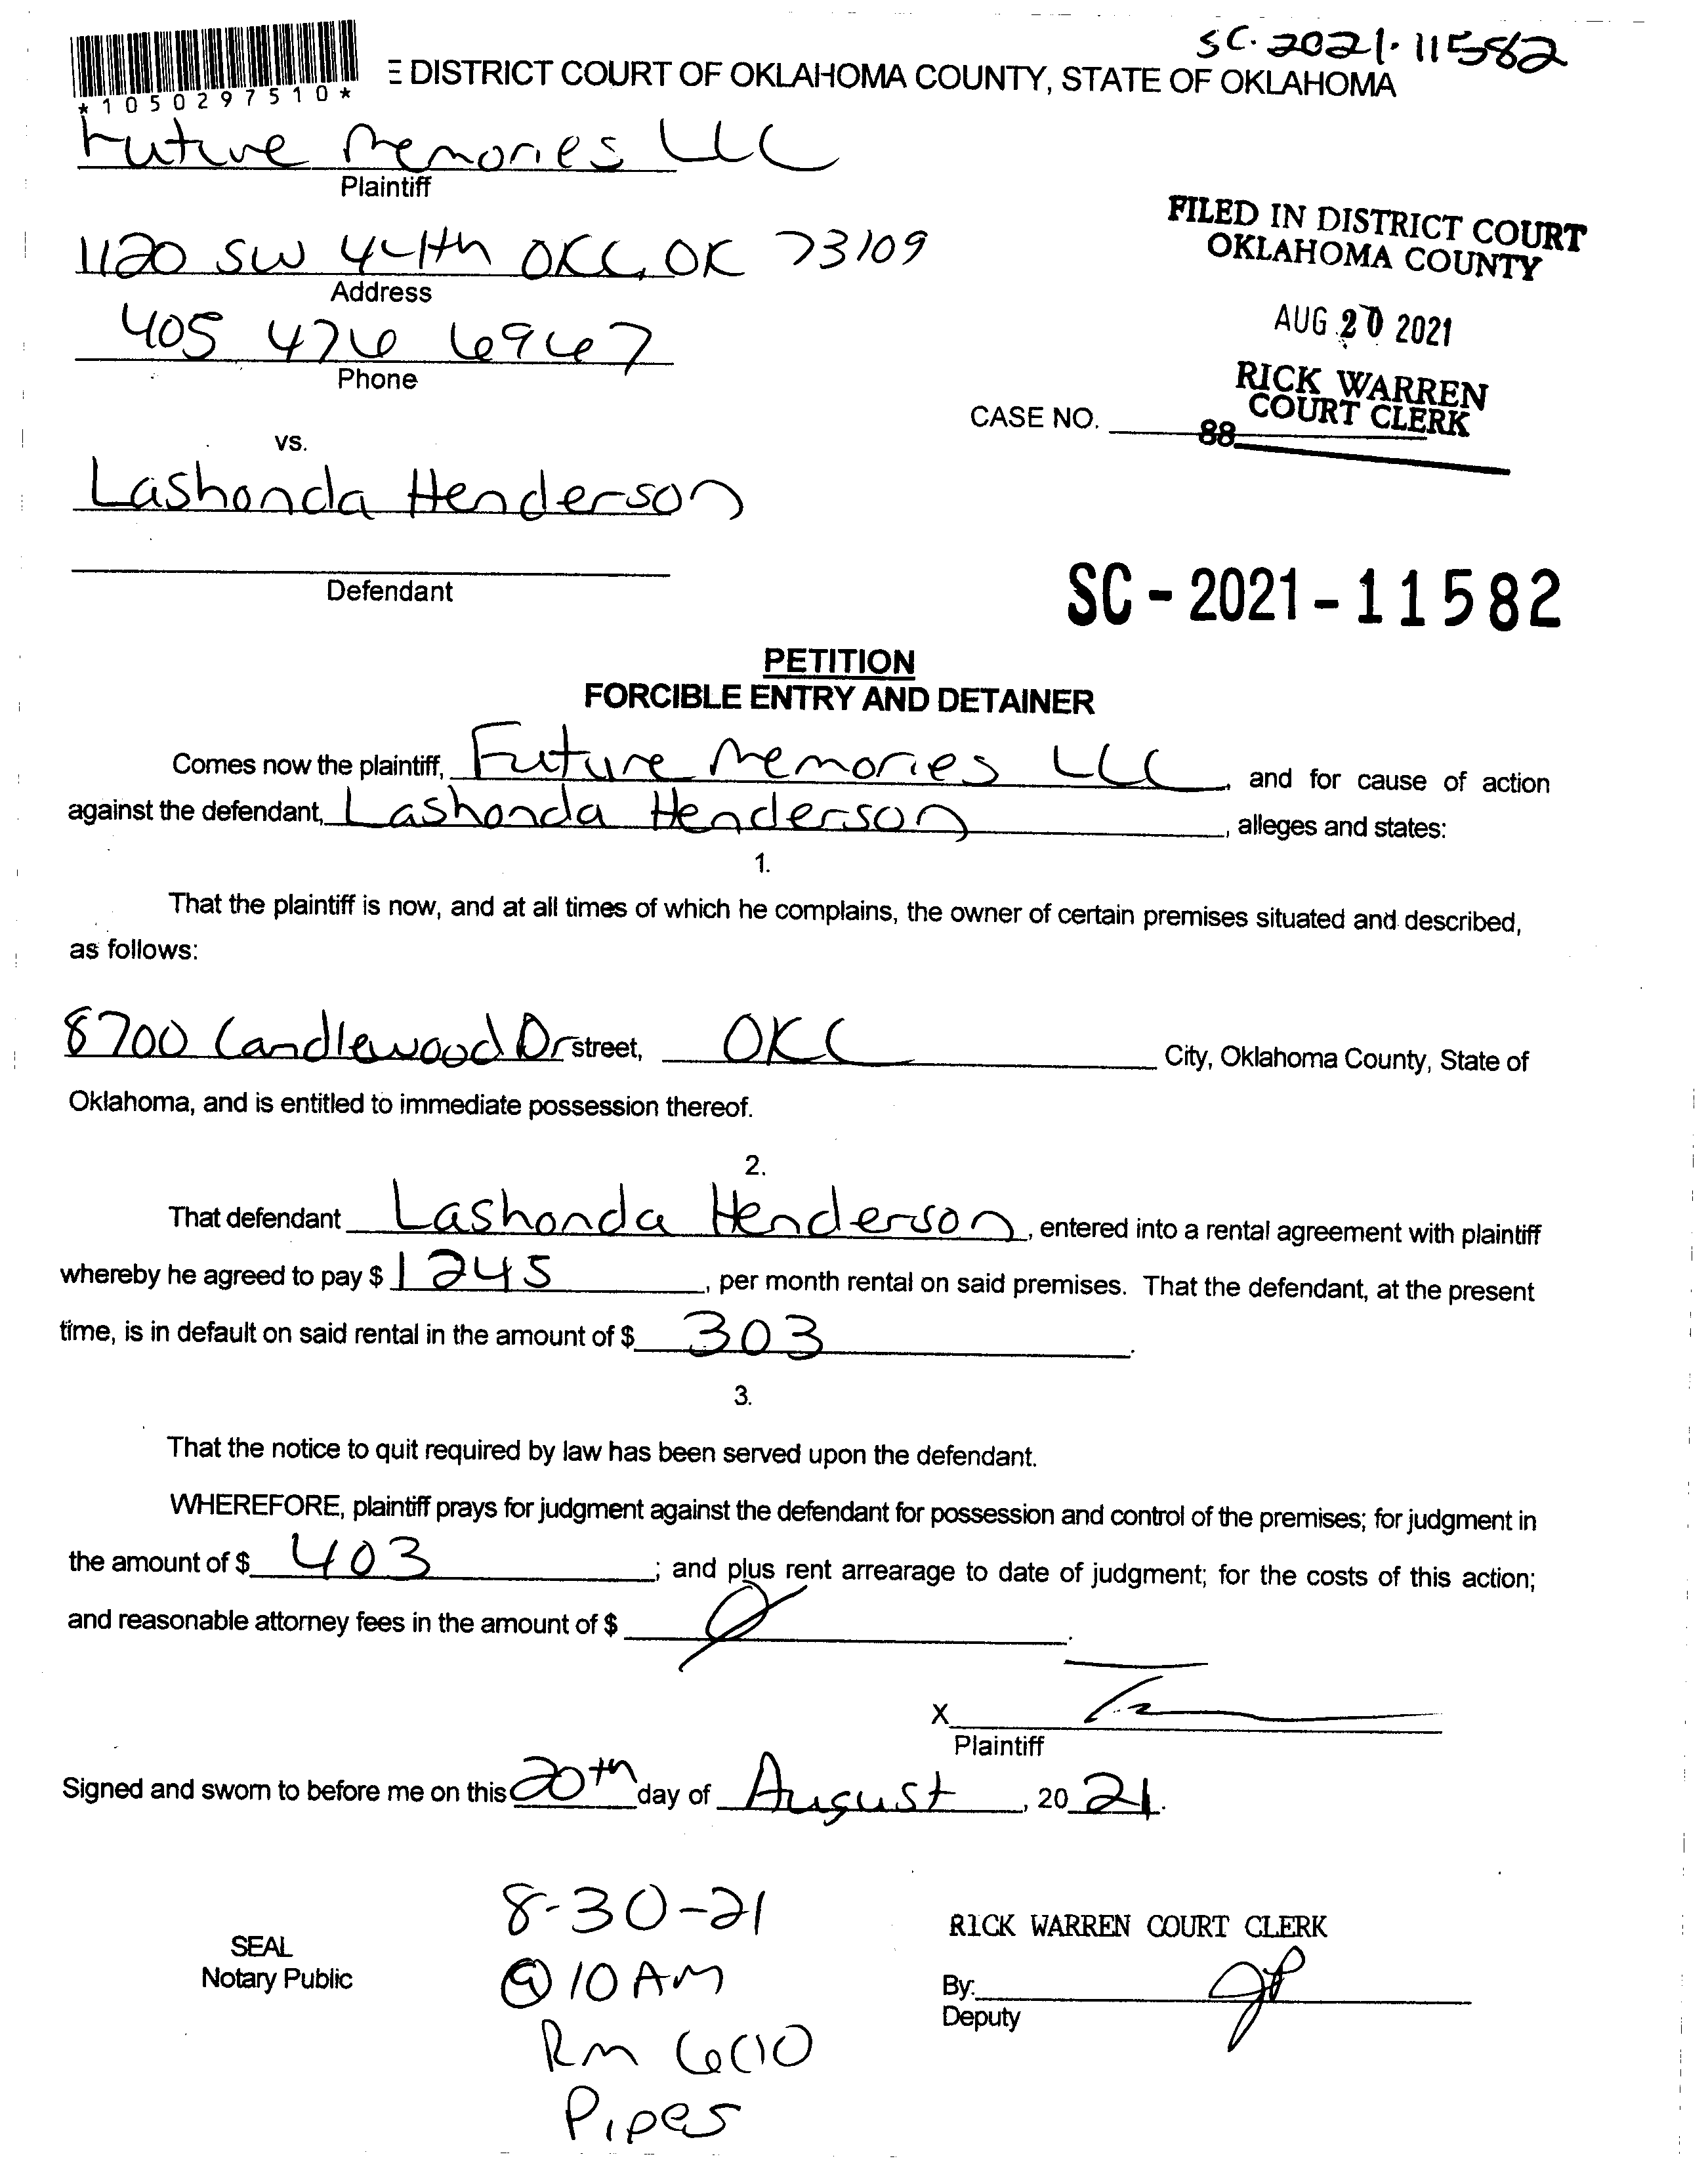 SC-2021-11582
*1050297510*
E DISTRICT COURT OF OKLAHOMA COUNTY, STATE OF OKLAHOMA
Future Memories LLC
Plaintiff
1120 SW 44th OKC, OK 73109
Address
405 476 6967
Phone
FILED IN DISTRICT COURT
OKLAHOMA COUNTY
AUG 20 2021
RICK WARREN
COURT CLERK
CASE NO.
88
vs.
Lashonda Henderson
Defendant
SC-2021-11582
PETITION
FORCIBLE ENTRY AND DETAINER
Comes now the plaintiff, Future Memories LLC, and for cause of action
against the defendant, Lashonda Henderson, alleges and states:
1.
That the plaintiff is now, and at all times of which he complains, the owner of certain premises situated and described,
as follows:
8700 Candlewood Dr street, OKC City, Oklahoma County, State of
Oklahoma, and is entitled to immediate possession thereof.
2.
That defendant Lashonda Henderson, entered into a rental agreement with plaintiff
whereby he agreed to pay $ 1245, per month rental on said premises. That the defendant, at the present
time, is in default on said rental in the amount of $ 303.
3.
That the notice to quit required by law has been served upon the defendant.
WHEREFORE, plaintiff prays for judgment against the defendant for possession and control of the premises; for judgment in
the amount of $ 403; and plus rent arrearage to date of judgment; for the costs of this action;
and reasonable attorney fees in the amount of $ Ø.
X
Plaintiff
Signed and sworn to before me on this 20th day of August, 20 21.
SEAL
Notary Public
8-30-21
@ 10 AM
Rm
Pipes
RICK WARREN COURT CLERK
By:
Deputy